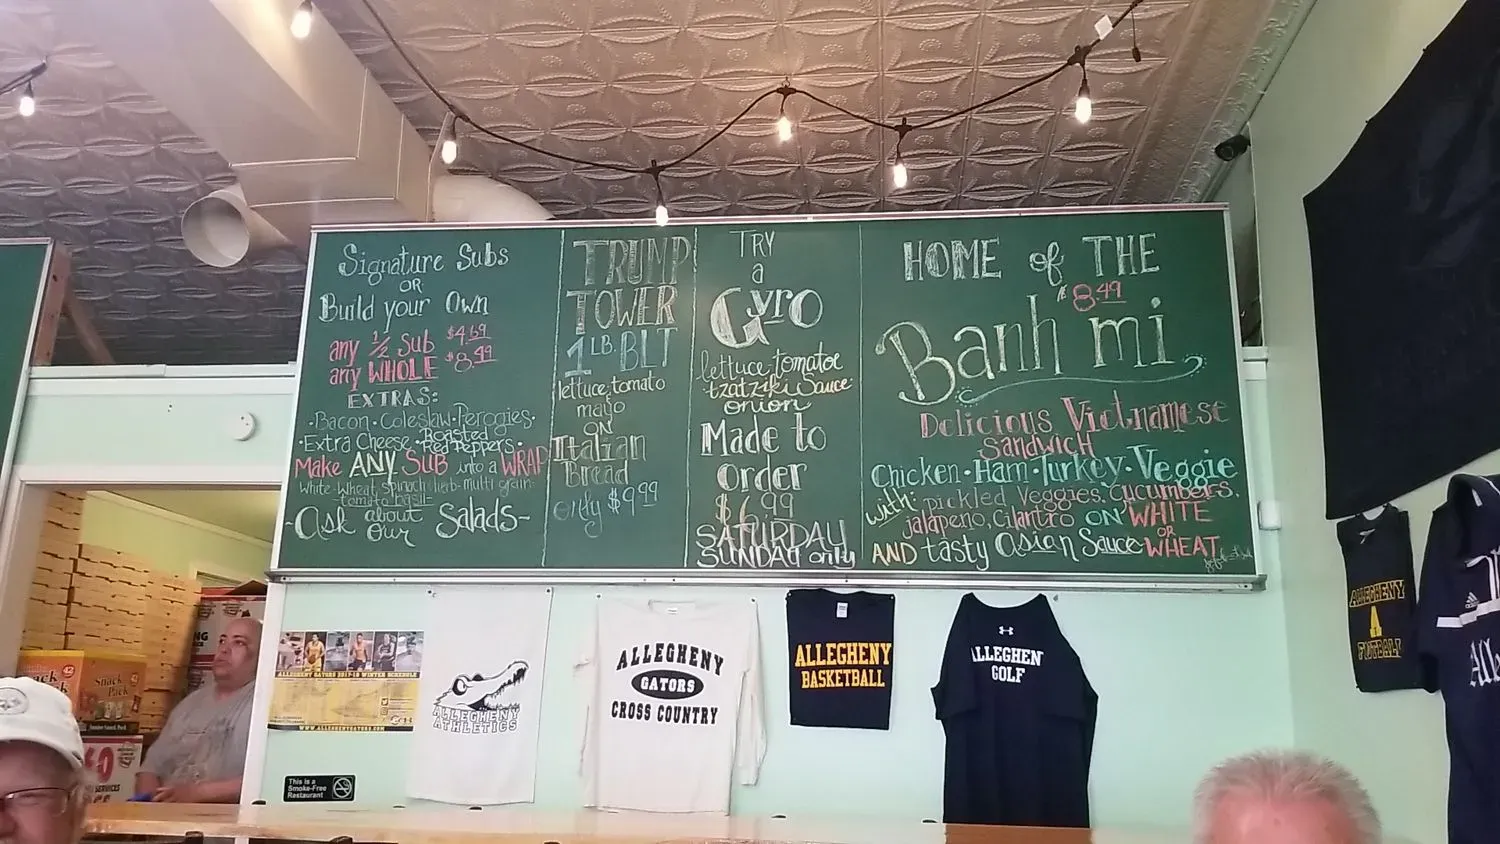 Signature Subs
OR
Build your Own
any 1/2 Sub $4.69
any WHOLE $8.49
EXTRAS:
·Bacon·Coleslaw·Perogies·
·Extra Cheese·Roasted Red Peppers·
Make ANY SUB into a WRAP
White-Wheat-spinach-herb-multi grain-
-tomato basil-
-Ask about our Salads-
TRUMP
TOWER
1 LB. BLT
lettuce, tomato
mayo
ON
Italian
Bread
only $9.99
TRY
a
Gyro
lettuce, tomatoe
tzatziki sauce
onion
Made to
order
$6.99
SATURDAY
SUNDAY only
HOME of THE
8.49
Banh mi
Delicious Vietnamese
SANDWICH
Chicken·Ham·Turkey·Veggie
with: pickled Veggies, Cucumbers,
jalapeno, Cilantro ON WHITE
OR
AND tasty Asian Sauce WHEAT
Snack
Pack
SERVICES
ALLEGHENY GATORS 2017-18 WINTER SCHEDULE
WWW.ALLEGHENYGATORS.COM
This is a
Smoke-Free
Restaurant
ALLEGHENY
ATHLETICS
ALLEGHENY
GATORS
CROSS COUNTRY
ALLEGHENY
BASKETBALL
ALLEGHEN
GOLF
ALLEGHENY
A
FOOTBALL
adidas